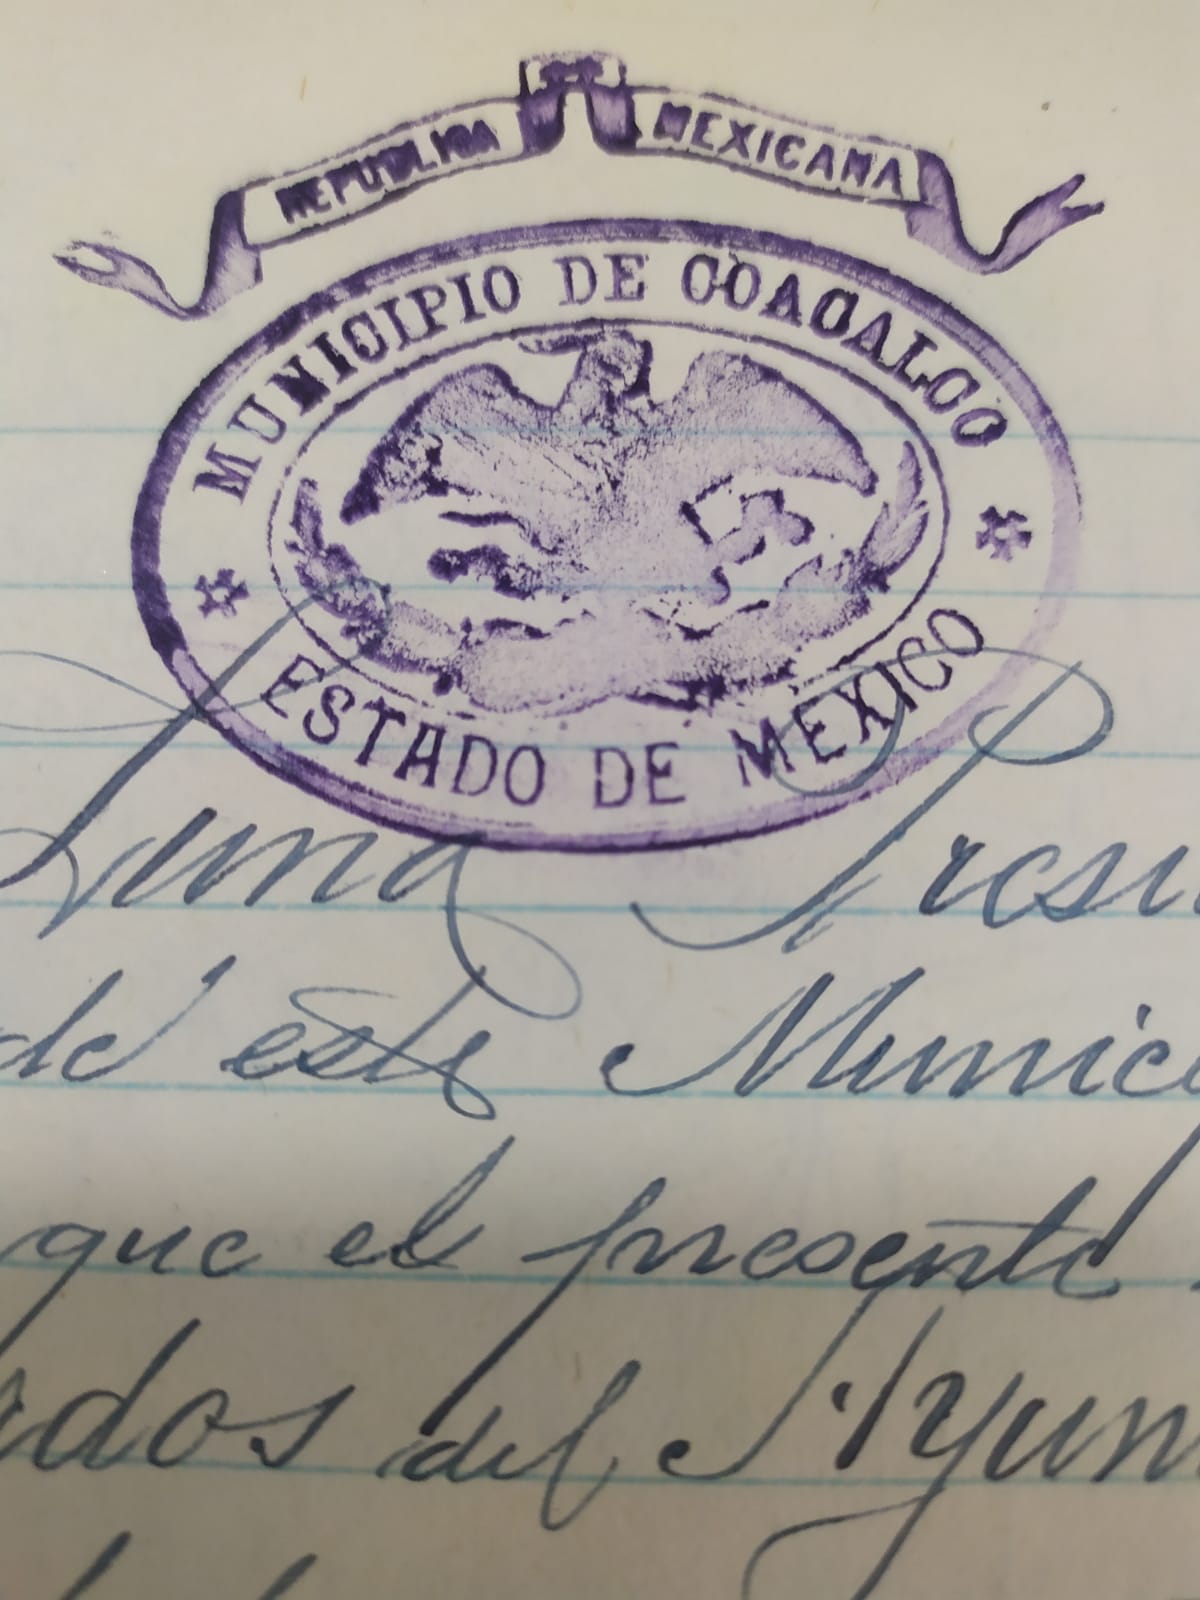 REPUBLICA MEXICANA
MUNICIPIO DE COACALCO
ESTADO DE MEXICO
Luna Presi
de este Munic
que el presente
ados del Ayun